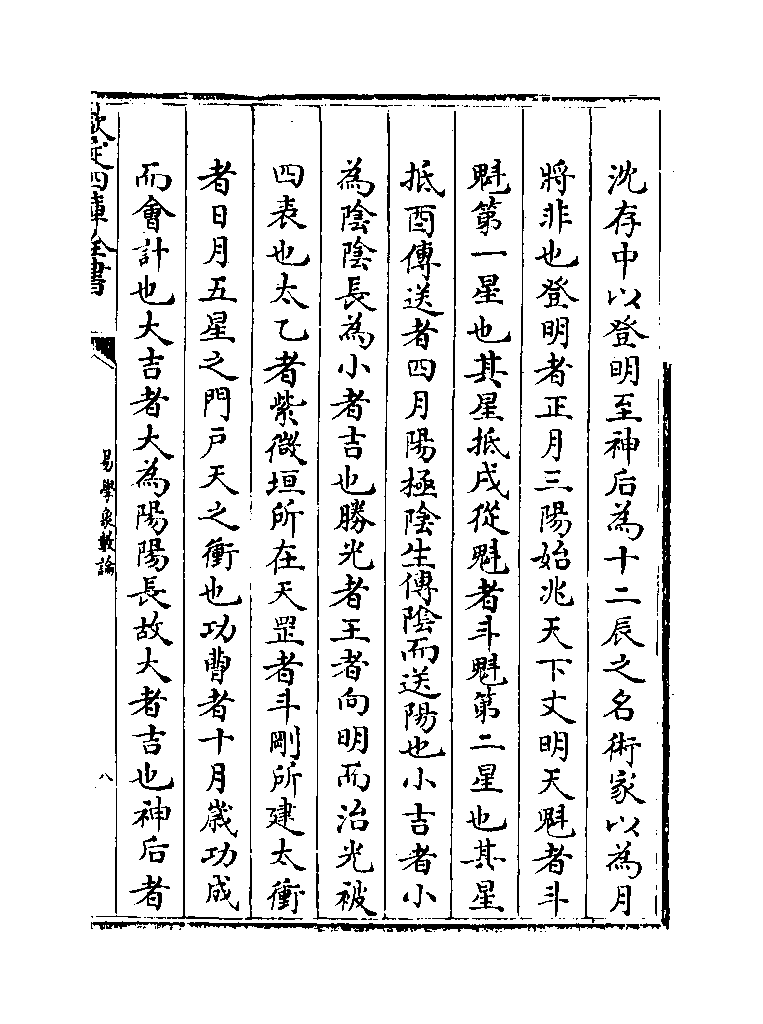 沈存中以登明至神后為十二辰之名術家以為月
將非也登明者正月三陽始兆天下文明天魁者斗
魁第一星也其星抵戌從魁者斗魁第二星也其星
抵酉傳送者四月陽極陰生傳陰而送陽也小吉者小
為陰陰長為小者吉也勝光者王者向明而治光被
四表也太乙者紫微垣所在天罡者斗剛所建太衝
者日月五星之門戶天之衝也功曹者十月歳功成
而會計也大吉者大為陽陽長故大者吉也神后者
欽定四庫全書
易學象數論
八